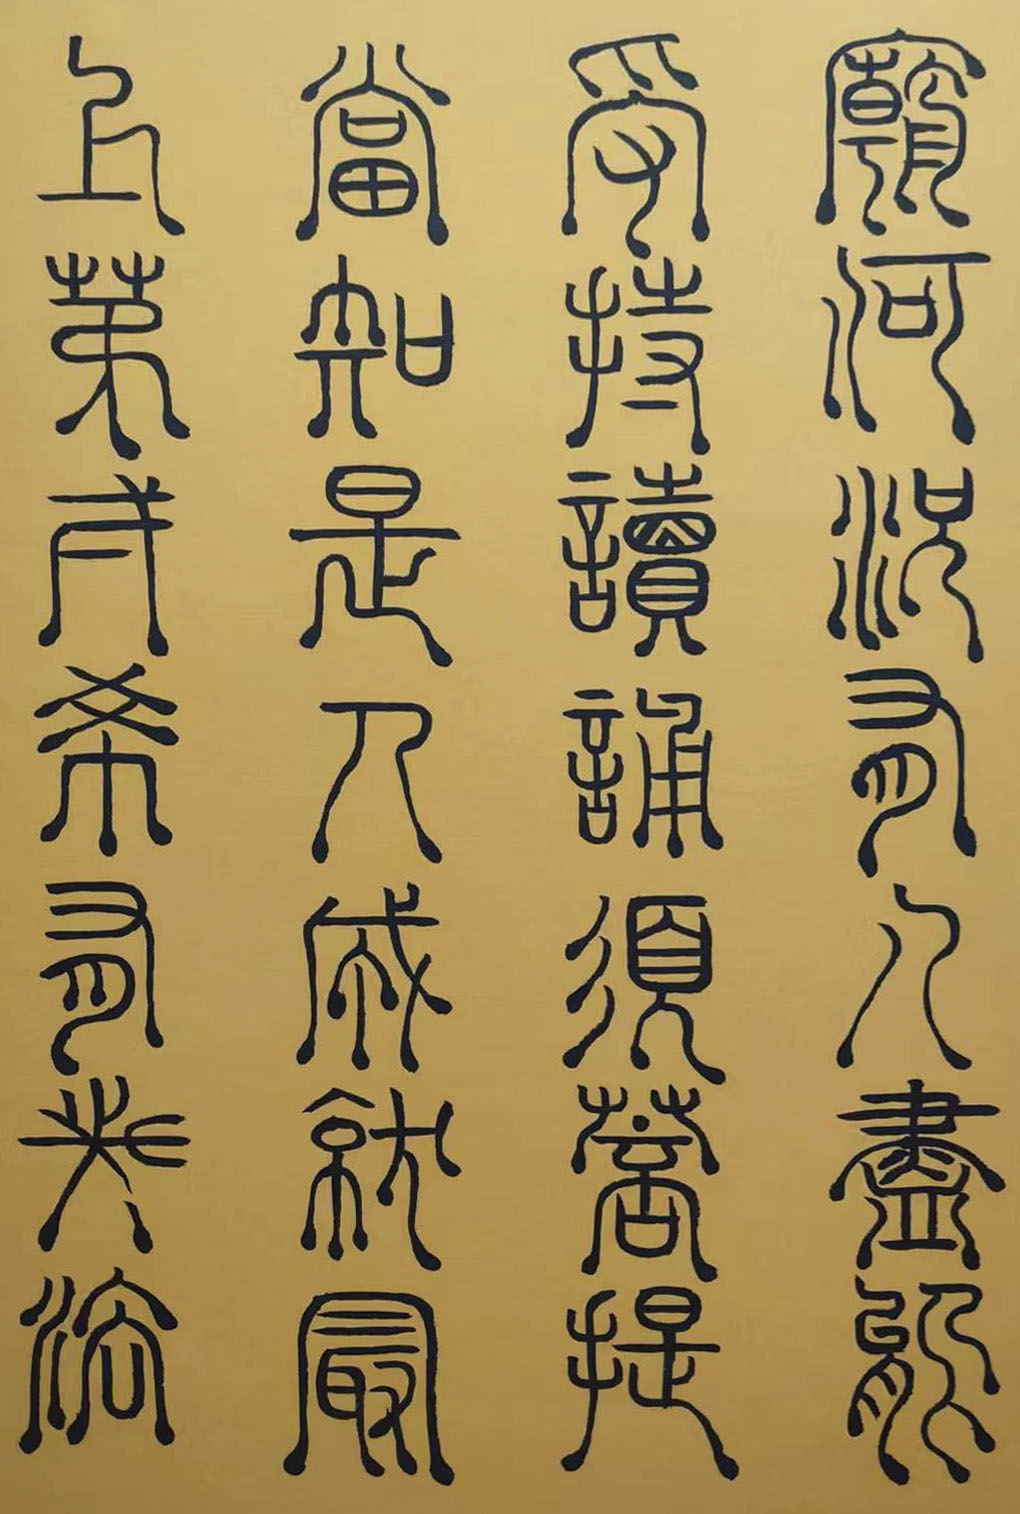 廟何況有人盡能
受持讀誦須菩提
當知是人成就最
上第一希有之法